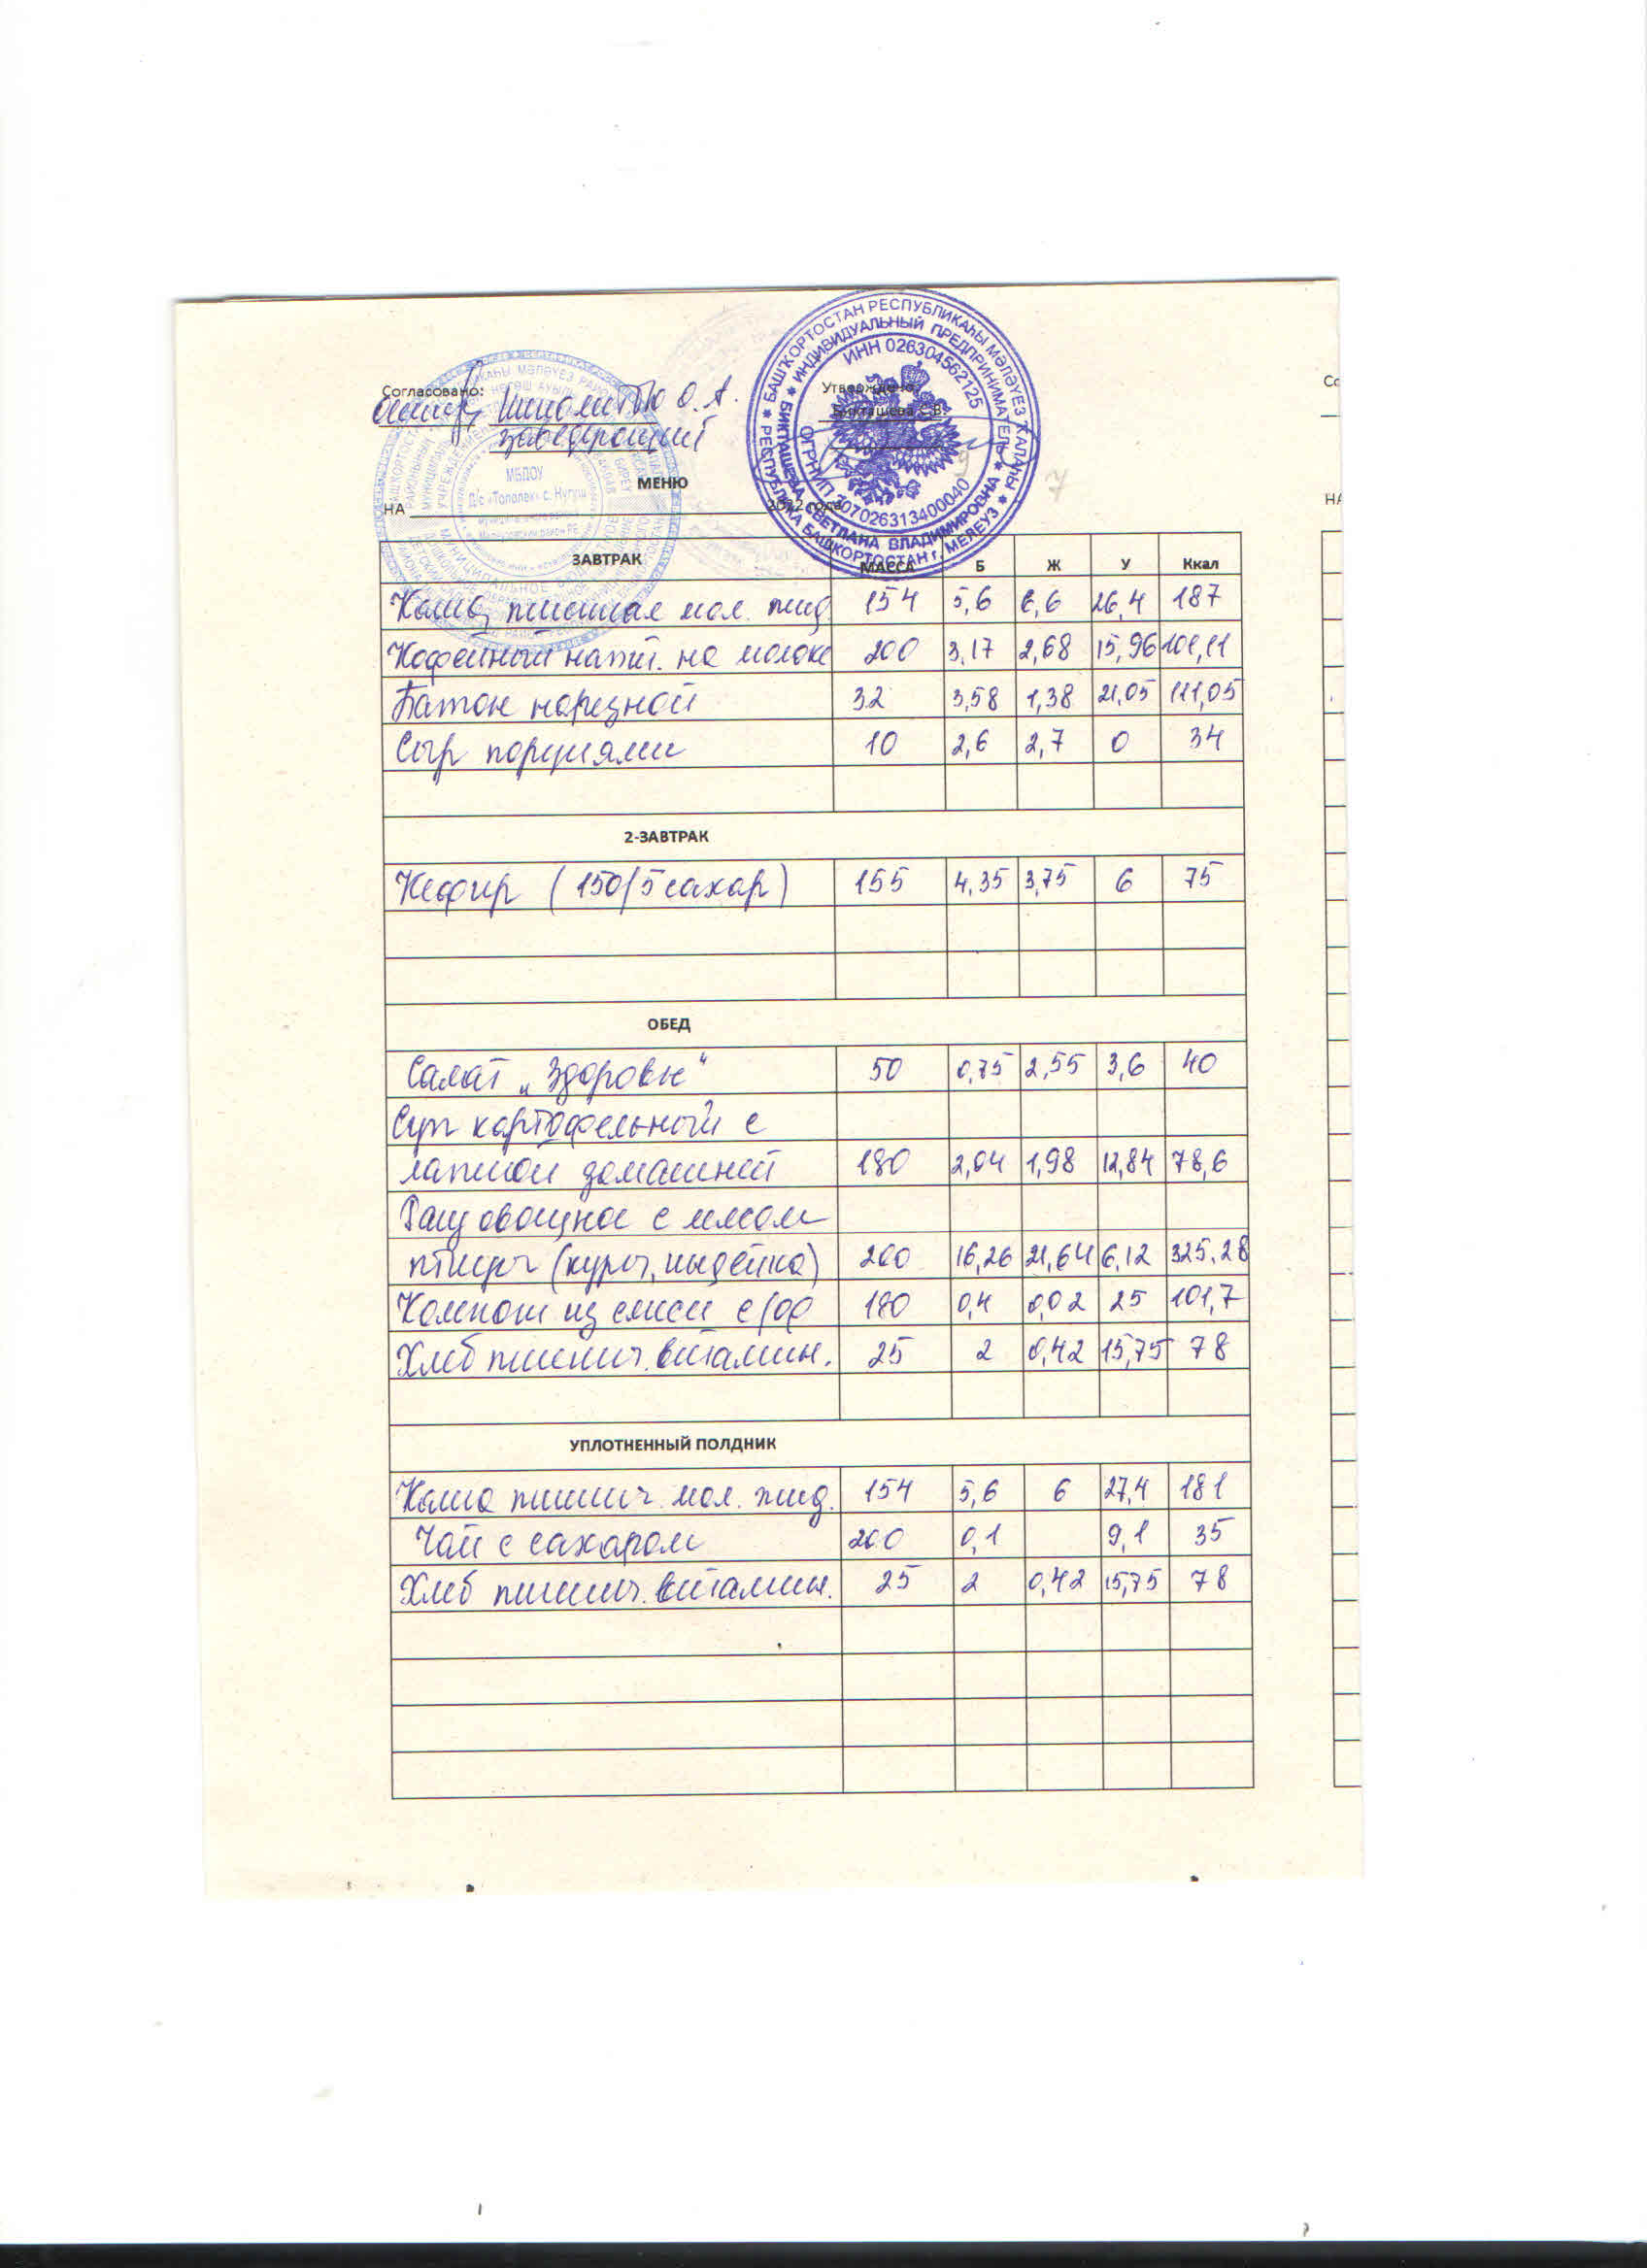 Согласовано:
Утверждено
О.А.
Бикташева С.В.
заведующий
МЕНЮ
НА 2022 года
БАШҠОРТОСТАН РЕСПУБЛИКАҺЫ МӘЛӘҮЕЗ ҠАЛАҺЫ
РЕСПУБЛИКА БАШКОРТОСТАН г. МЕЛЕУЗ
ИНДИВИДУАЛЬНЫЙ ПРЕДПРИНИМАТЕЛЬ
БИКТАШЕВА СВЕТЛАНА ВЛАДИМИРОВНА
ИНН 026304562125
ОГРНИП 307026313400040
МБДОУ
Д/с «Тополек» с. Нугуш
ЗАВТРАК МАССА Б Ж У Ккал
Каша пшенная мол. жид. 154 5,6 6,6 26,4 187
Кофейный напит. на молоке 200 3,17 2,68 15,96 101,11
Батон нарезной 32 3,58 1,38 21,05 111,05
Сыр порциями 10 2,6 2,7 0 34
2-ЗАВТРАК
Кефир (150/5 сахар) 155 4,35 3,75 6 75
ОБЕД
Салат „Здоровье“ 50 0,75 2,55 3,6 40
Суп картофельный с
лапшой домашней 180 2,04 1,98 12,84 78,6
Рагу овощное с мясом
птицы (куры, индейка) 200 16,26 21,64 6,12 325,28
Компот из смеси с/ф 180 0,4 0,02 25 101,7
Хлеб пшенич. витамин. 25 2 0,42 15,75 78
УПЛОТНЕННЫЙ ПОЛДНИК
Каша пшенич. мол. жид. 154 5,6 6 27,4 181
Чай с сахаром 200 0,1 9,1 35
Хлеб пшенич. витамин. 25 2 0,42 15,75 78
Со
НА